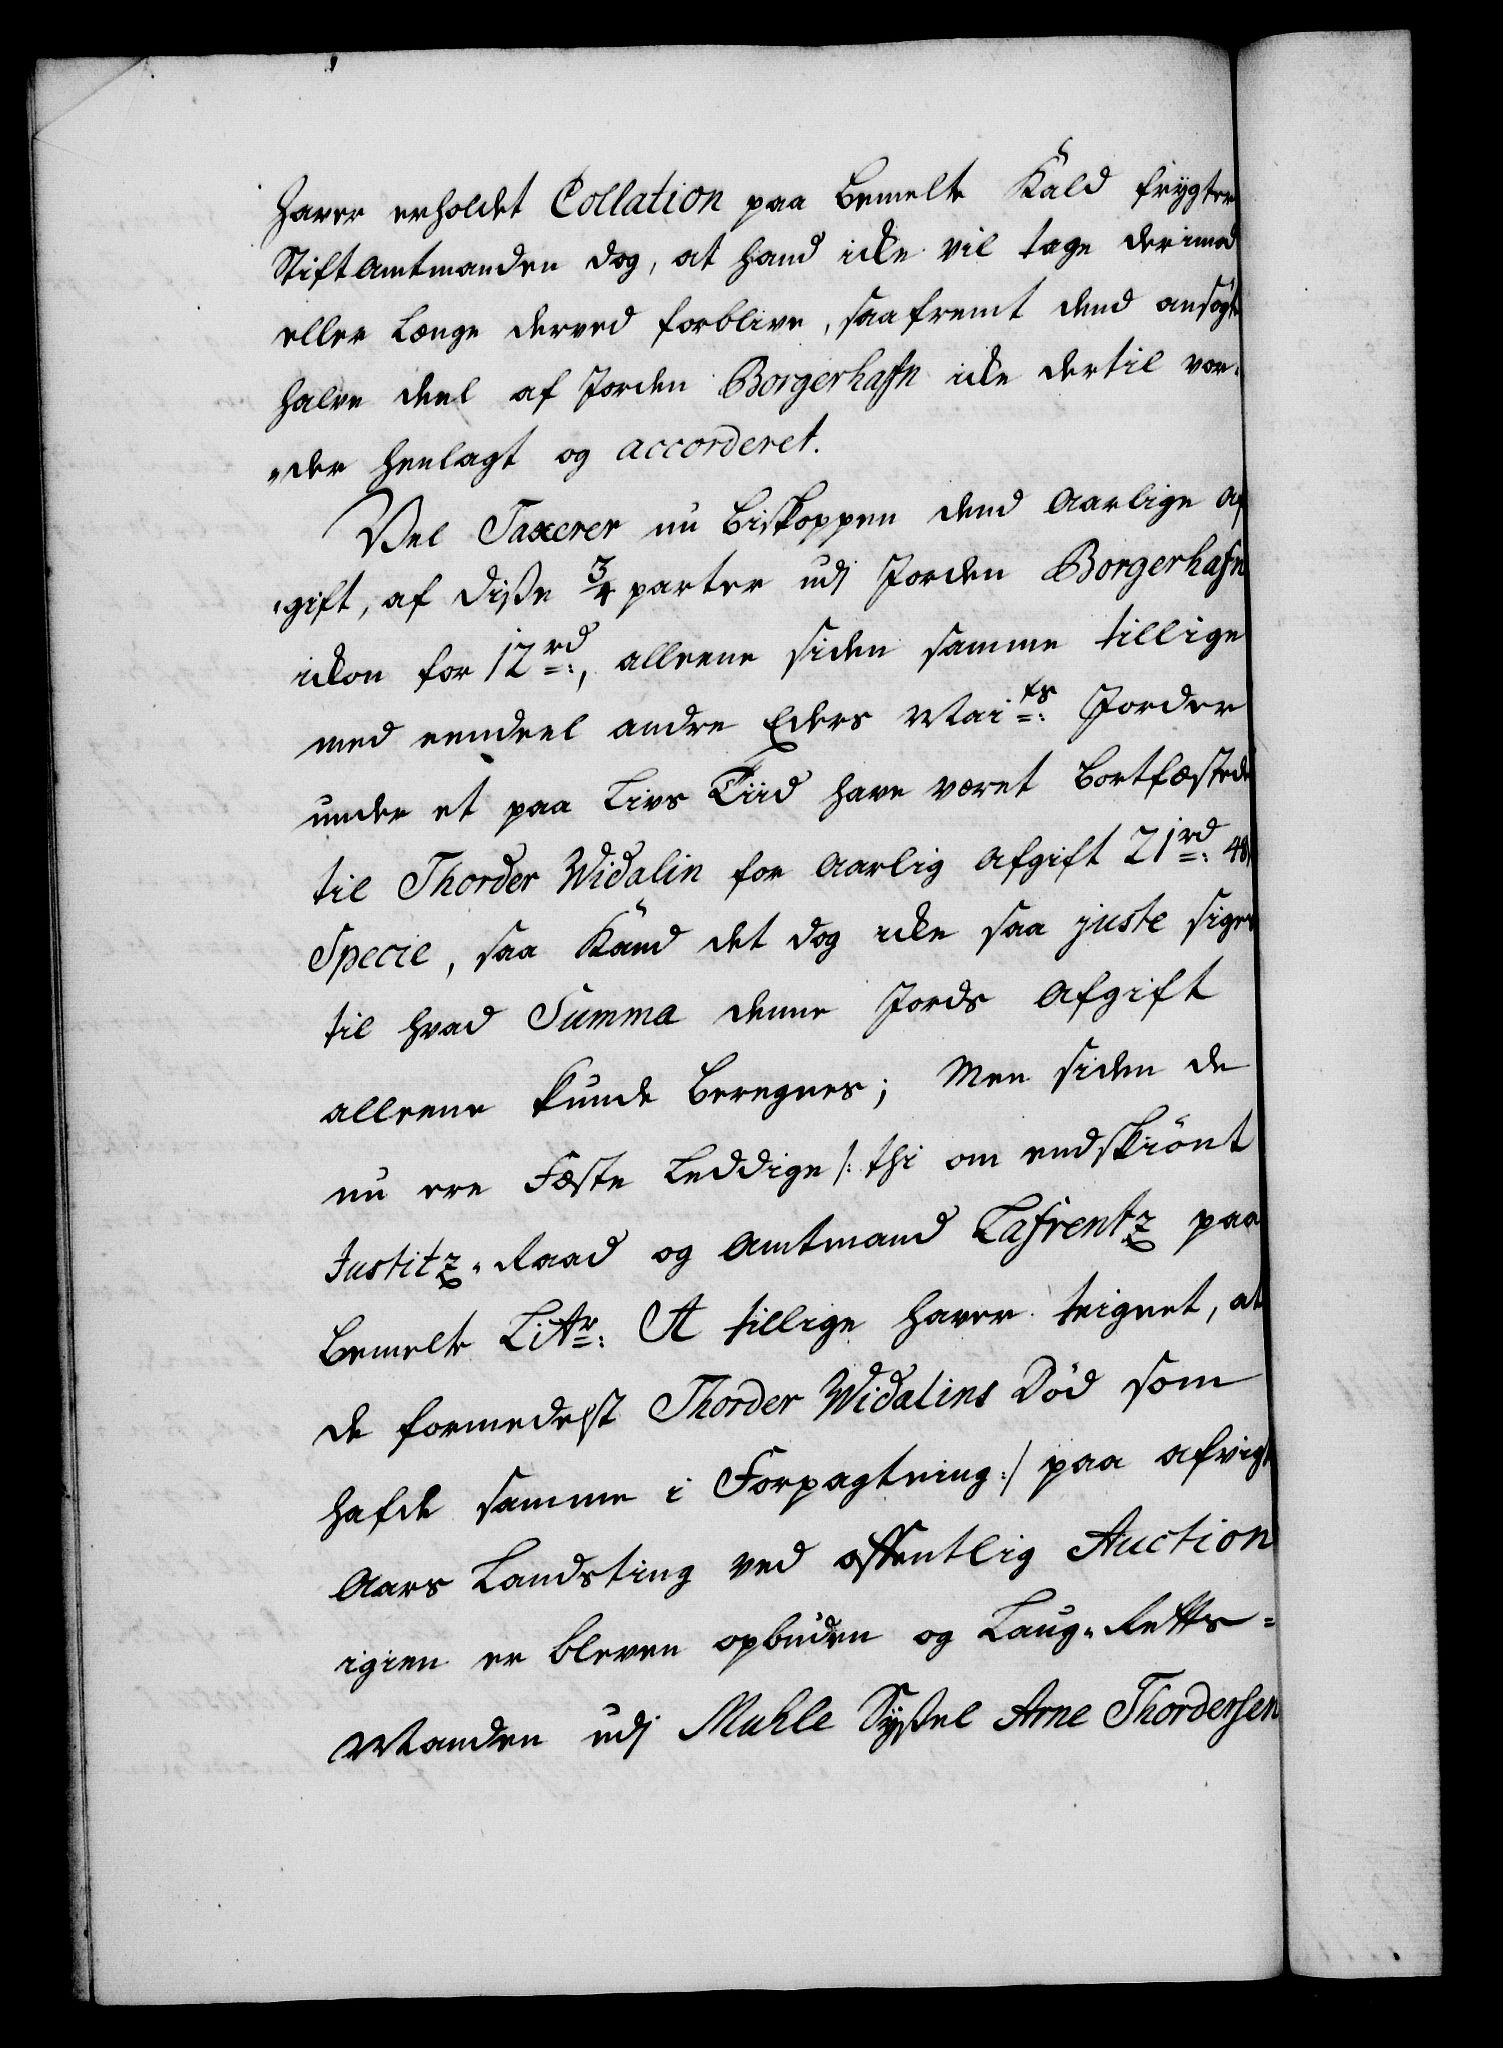 haver erholdet Collation paa bemelte Kald frygter
Stiftamtmanden dog, at hand icke vil tage derimod
eller længe derved forblive, saafremt dend ansøgte
halve deel af Jorden Borgerhafn icke dertil vor-
„der henlagt og accorderet.
Vel Taxerer nu Biskoppen dend Aarlige Af
„gift, af disse 3/4 parter udj Jorden Borgerhafn
ickon for 12 rd:, alleene siden samme tillige
med eendeel andre Eders Mai ts: Jorder
under et paa Livs Tiid have været bortfæstede
til Thorder Widalin for Aarlig Afgift 21 rd: 48
Specie, saa Kand det dog icke saa juste siges
til hvad Summa denne Jords Afgift
alleene kunde beregnes; Men siden de
nu ere Fæste Leddige /: thi om endskiønt
Justitz„Raad og Amtmand Lafrentz paa
bemelte Litr: A tillige haver teignet, at
de formedelst Thorder Widalins Død som
hafde samme i Forpagtning :/ paa afvigt
Aars Landsting ved offentlig Auction
igien er bleven opbuden og Laug„Retts-
Manden udj Muhle Syssel Arne Thordersen